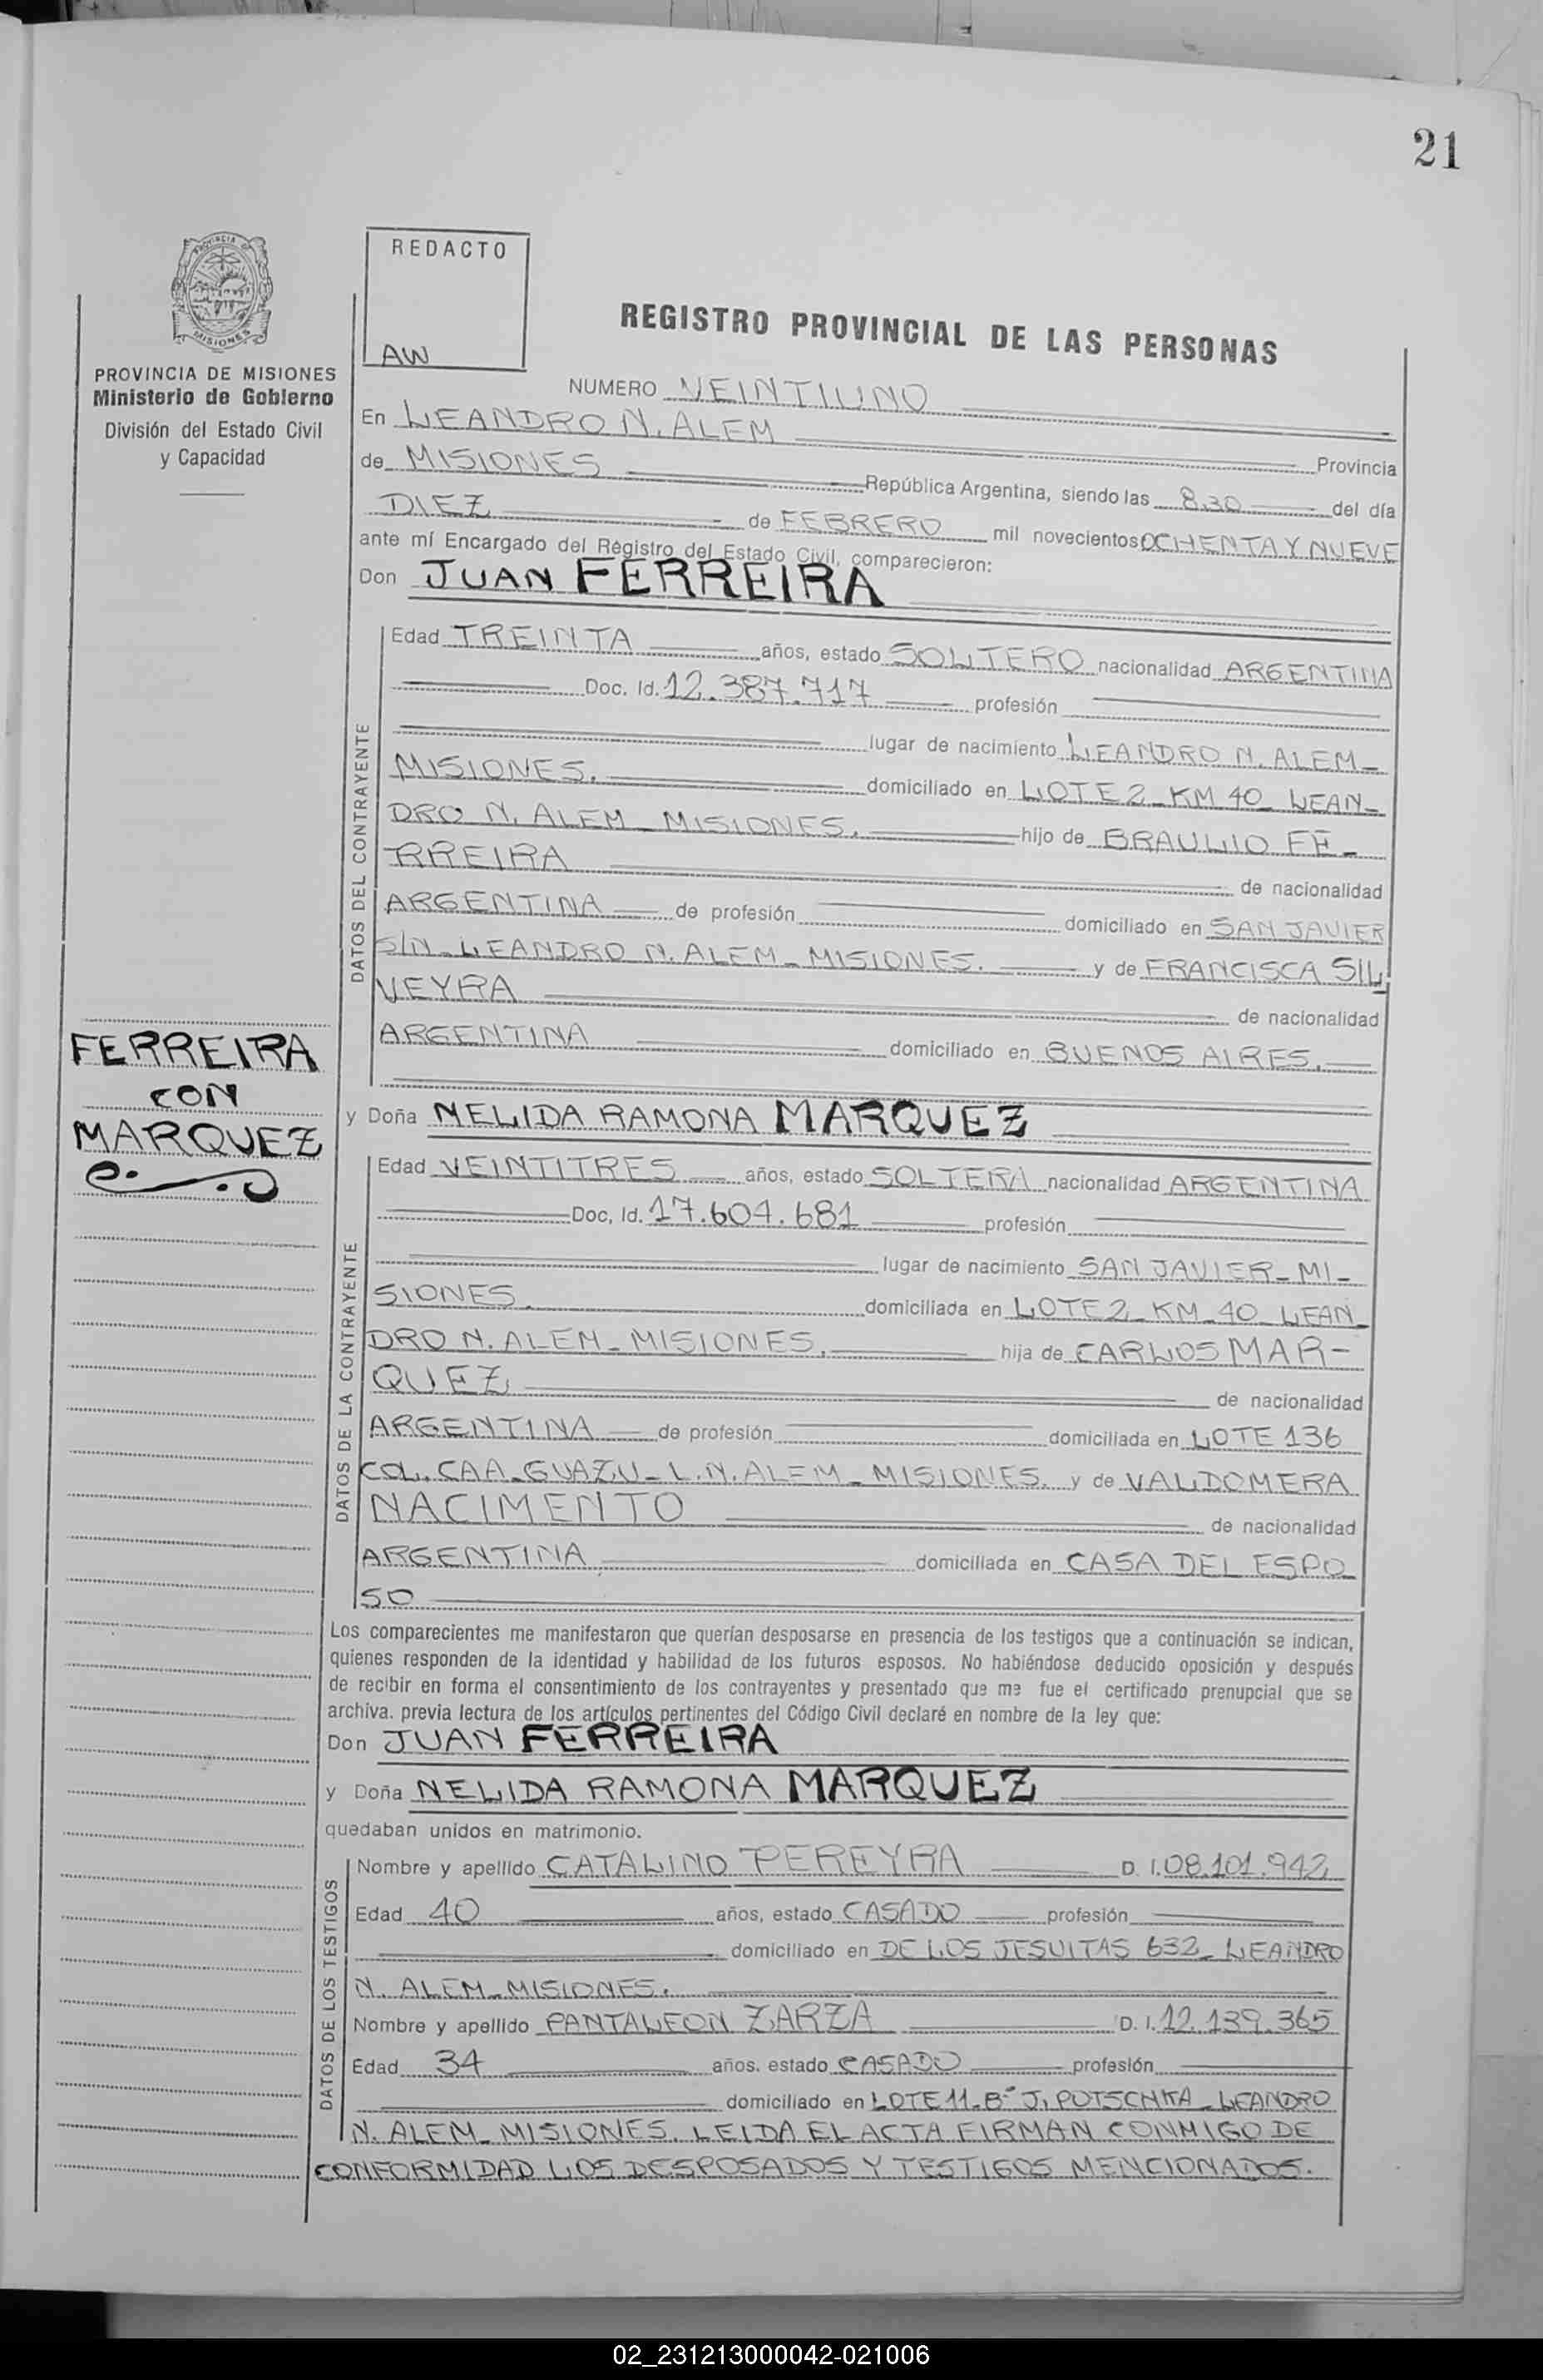 21
PROVINCIA DE
MISIONES
REDACTO
AW
REGISTRO PROVINCIAL DE LAS PERSONAS
PROVINCIA DE MISIONES
Ministerio de Gobierno
División del Estado Civil
y Capacidad
NUMERO VEINTIUNO
En LEANDRO N. ALEM Provincia
de MISIONES República Argentina, siendo las 8,30 del día
DIEZ de FEBRERO mil novecientos OCHENTA Y NUEVE
ante mí Encargado del Registro del Estado Civil, comparecieron:
Don JUAN FERREIRA
DATOS DEL CONTRAYENTE
Edad TREINTA años, estado SOLTERO nacionalidad ARGENTINA
Doc. Id. 12.387.717 profesión
lugar de nacimiento LEANDRO N. ALEM_
MISIONES. domiciliado en LOTE 2_ KM 40_ LEAN_
DRO N. ALEM_ MISIONES. hijo de BRAULIO FE_
RREIRA de nacionalidad
ARGENTINA de profesión domiciliado en SAN JAVIER
S/N_ LEANDRO N. ALEM_ MISIONES. y de FRANCISCA SIL
VEYRA de nacionalidad
ARGENTINA domiciliado en BUENOS AIRES.
FERREIRA
CON
MARQUEZ
y Doña NELIDA RAMONA MARQUEZ
DATOS DE LA CONTRAYENTE
Edad VEINTITRES años, estado SOLTERA nacionalidad ARGENTINA
Doc, Id. 17.604.681 profesión
lugar de nacimiento SAN JAVIER_ MI_
SIONES. domiciliada en LOTE 2_ KM_40_ LEAN_
DRO N. ALEM_ MISIONES. hija de CARLOS MAR-
QUEZ de nacionalidad
ARGENTINA de profesión domiciliada en LOTE 136
COL. CAA_GUAZU_ L.N. ALEM_ MISIONES. y de VALDOMERA
NACIMENTO de nacionalidad
ARGENTINA domiciliada en CASA DEL ESPO_
SO
Los comparecientes me manifestaron que querían desposarse en presencia de los testigos que a continuación se indican,
quienes responden de la identidad y habilidad de los futuros esposos. No habiéndose deducido oposición y después
de recibir en forma el consentimiento de los contrayentes y presentado que me fue el certificado prenupcial que se
archiva. previa lectura de los artículos pertinentes del Código Civil declaré en nombre de la ley que:
Don JUAN FERREIRA
y Doña NELIDA RAMONA MARQUEZ
quedaban unidos en matrimonio.
DATOS DE LOS TESTIGOS
Nombre y apellido CATALINO PEREYRA D. I. 08.101.942
Edad 40 años, estado CASADO profesión
domiciliado en DE LOS JESUITAS 632_ LEANDRO
N. ALEM_MISIONES.
Nombre y apellido PANTALEON ZARZA D. I. 12.139.365
Edad 34 años. estado CASADO profesión
domiciliado en LOTE 11_ B° J. POTSCHKA_ LEANDRO
N. ALEM_ MISIONES. LEIDA EL ACTA FIRMAN CONMIGO DE
CONFORMIDAD LOS DESPOSADOS Y TESTIGOS MENCIONADOS.
02_231213000042-021006